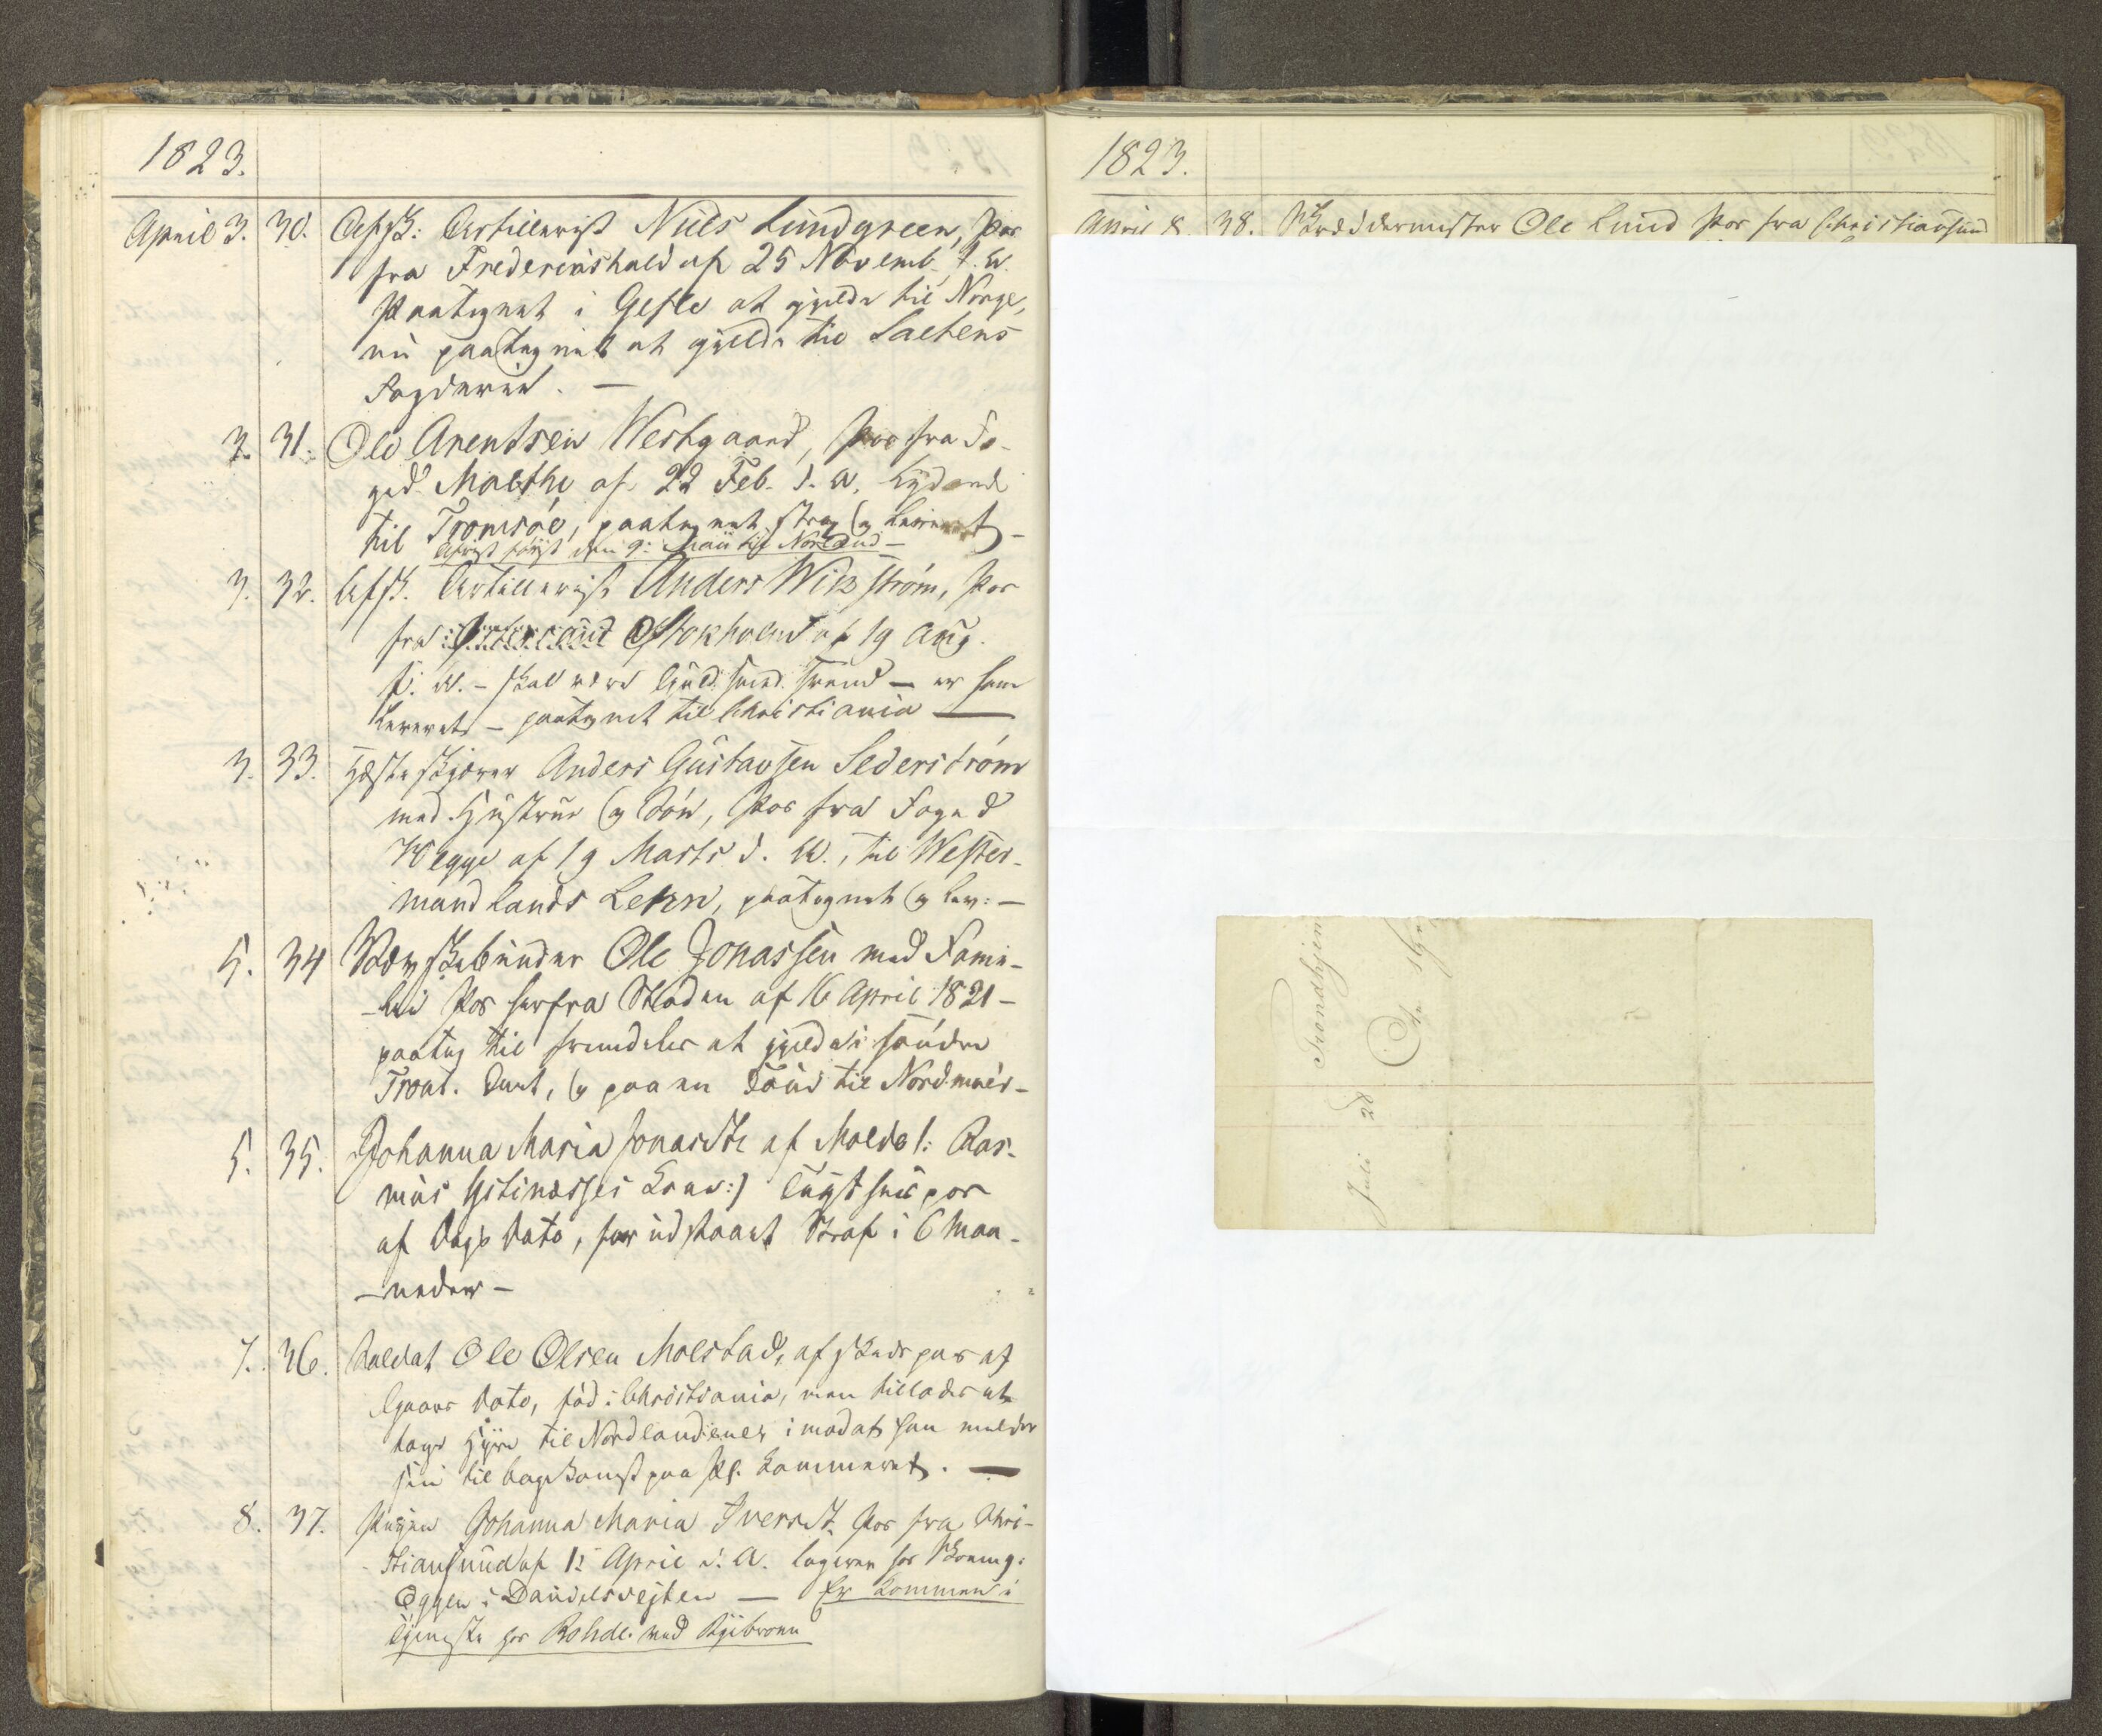 1823.
April 3. 30. Afsk: Artillerist Niels Lundgreen, Pas
fra Fredericshald af 25 Novemb. f. A.
Paategnet i Gefle at gielde til Norge,
nu paategnet at gielde til Saltens
Fogderie. —
3. 31. Ole Arentsen Westgaard, Pas fra Fo-
ged Malthe af 22 Feb. d. A. lydende
til Tromsöe, paategnet strax og leveret —
den 9: Maii til Nordland —
3. 32. Afsk. Artillerist Anders Wikström, Pas
fra Stokholm af 19 Aug.
f. A. – skal være Guldsmed Svend — er ham
leveret – paategnet til Christiania —
3. 33. Hesteskjærer Anders Gustavsen Sederström
med Hustrue og Sön, Pas fra Foged
Wegge af 19 Marts d. A., til Wester-
mandlands Lehn, paategnet og lev: —
5. 34 Ole Jonassen med Fami-
-lie Pas herfra Staden af 16 April 1821 –
paateg til fremdeles at gielde i söndre
Tront. Amt, og paa en Tour til Nordmöer –
5. 35. Johanna Maria Jonasdtr af Molde /: Ras-
mus Kone:/ Tugthuuspas
af Dags Dato, har udstaaet Straf i 6 Maa-
– neder –
7. 36. Soldat Ole Olsen Moestad, afskeds pas af
Gaars Dato, föd i Christiania, men tillades at
tage Hyre til Nordlandene, imod at han melder
sin tilbagekomst paa Pl. Kammeret. —
8. 37. Pigen Johanna Maria Iversdt. Pas fra Chri-
stiansund af 12 April d. A. logerer hos
Eggen i Danielsvejten — Er kommen i
Tjeneste hos Rohde ved Byebroen
1823.
April 8 38. Skræddermester Ole Lund Pas fra Christiansund
Trondhjem
Juli 28